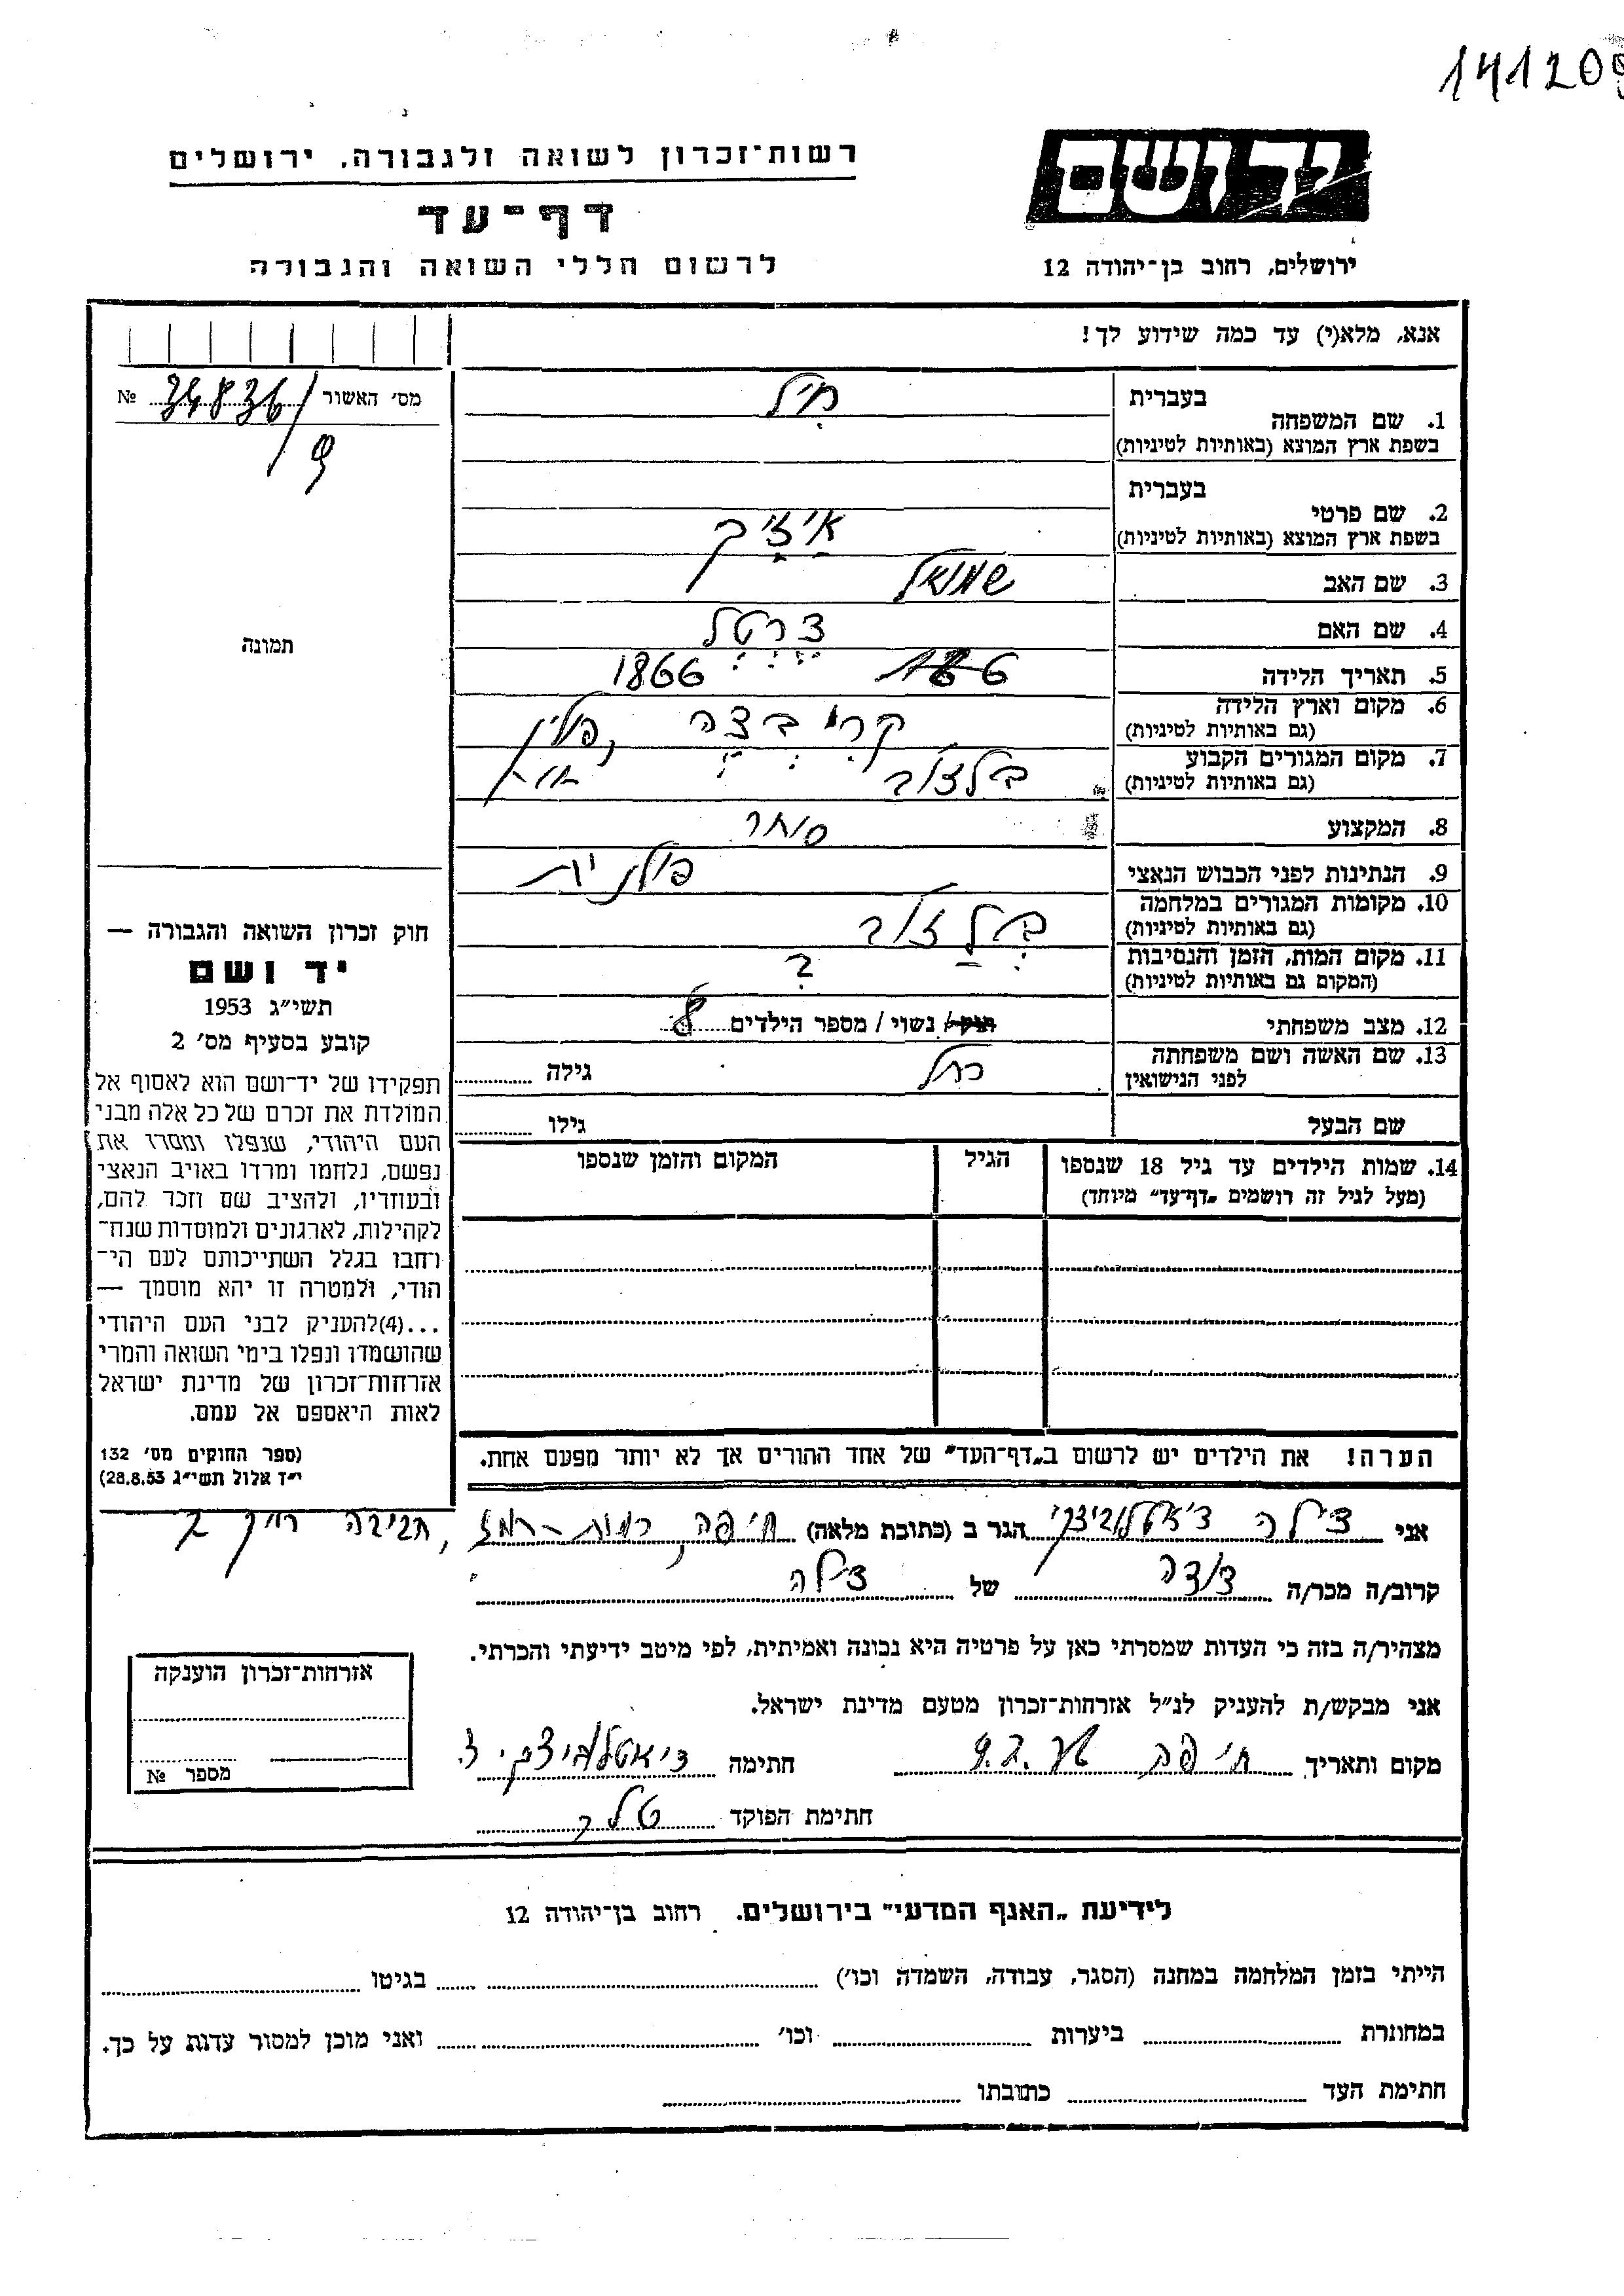 141209
ידושם
רשות־זכרון לשואה ולגבורה, ירושלים
דף־עד
לרשום חללי השואה והגבורה
ירושלים, רחוב בן־יהודה 12
אנא, מלא(י) עד כמה שידוע לך!
מס׳ האשור 34836/ №
9
תמונה
1. שם המשפחה בעברית מיל
בשפת ארץ המוצא (באותיות לטיניות)
2. שם פרטי בעברית
בשפת ארץ המוצא (באותיות לטיניות) אייזיק
3. שם האב שמואל
4. שם האם
5. תאריך הלידה 1866
6. מקום וארץ הלידה
(גם באותיות לטיניות) , פולין
7. מקום המגורים הקבוע
(גם באותיות לטיניות) -״-
8. המקצוע סוחר
9. הנתינות לפני הכבוש הנאצי פולנית
10. מקומות המגורים במלחמה
(גם באותיות לטיניות)
11. מקום המות, הזמן והנסיבות
(המקום גם באותיות לטיניות) ?
12. מצב משפחתי רווק / נשוי / מספר הילדים 8
13. שם האשה ושם משפחתה
לפני הנישואין רחל גילה
שם הבעל גילו
14. שמות הילדים עד גיל 18 שנספו
(מעל לגיל זה רושמים „דף־עד״ מיוחד)
הגיל
המקום והזמן שנספו
הערה! את הילדים יש לרשום ב„דף־העד״ של אחד ההורים אך לא יותר מפעם אחת.
חוק זכרון השואה והגבורה —
יד ושם
תשי״ג 1953
קובע בסעיף מס׳ 2
תפקידו של יד־ושם הוא לאסוף אל
המולדת את זכרם של כל אלה מבני
העם היהודי, שנפלו ומסרו את
נפשם, נלחמו ומרדו באויב הנאצי
ובעוזריו, ולהציב שם וזכר להם,
לקהילות, לארגונים ולמוסדות שנח־
רחבו בגלל השתייכותם לעם הי־
הודי, ולמטרה זו יהא מוסמך —
...(4)להעניק לבני העם היהודי
שהושמדו ונפלו בימי השואה והמרי
אזרחות־זכרון של מדינת ישראל
לאות היאספם אל עמם.
(ספר החוקים מס׳ 132
י״ז אלול תשי״ג 28.8.53)
אני צילה הגר ב (כתובת מלאה) חיפה, רמות-רמז, חביבה רייק
קרוב/ה מכר/ה של צילה
מצהיר/ה בזה כי העדות שמסרתי כאן על פרטיה היא נכונה ואמיתית, לפי מיטב ידיעתי והכרתי.
אני מבקש/ת להעניק לנ״ל אזרחות־זכרון מטעם מדינת ישראל.
מקום ותאריך חיפה חתימה
חתימת הפוקד
אזרחות־זכרון הוענקה
מספר №
לידיעת „האגף המדעי״ בירושלים. רחוב בן־יהודה 12
הייתי בזמן המלחמה במחנה (הסגר, עבודה, השמדה וכו׳) בגיטו
במחתרת ביערות וכו׳ ואני מוכן למסור עדות על כך.
חתימת העד כתובתו